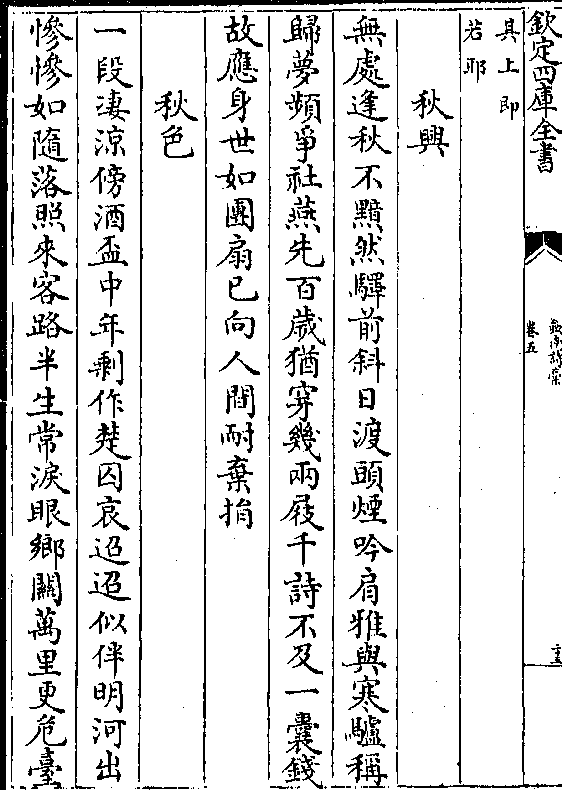 欽定四庫全書
劍南詩藁
卷五
其上即
若耶
秋興
無處逢秋不黯然驛前斜日渡頭煙吟肩雅與寒驢稱
歸夢頻爭社燕先百歲猶穿幾兩屐千詩不及一囊錢
故應身世如團扇已向人間耐棄捐
秋色
一段淒涼傍酒盃中年剩作楚囚哀迢迢似伴明河出
慘慘如隨落照來客路半生常淚眼鄉關萬里更危臺